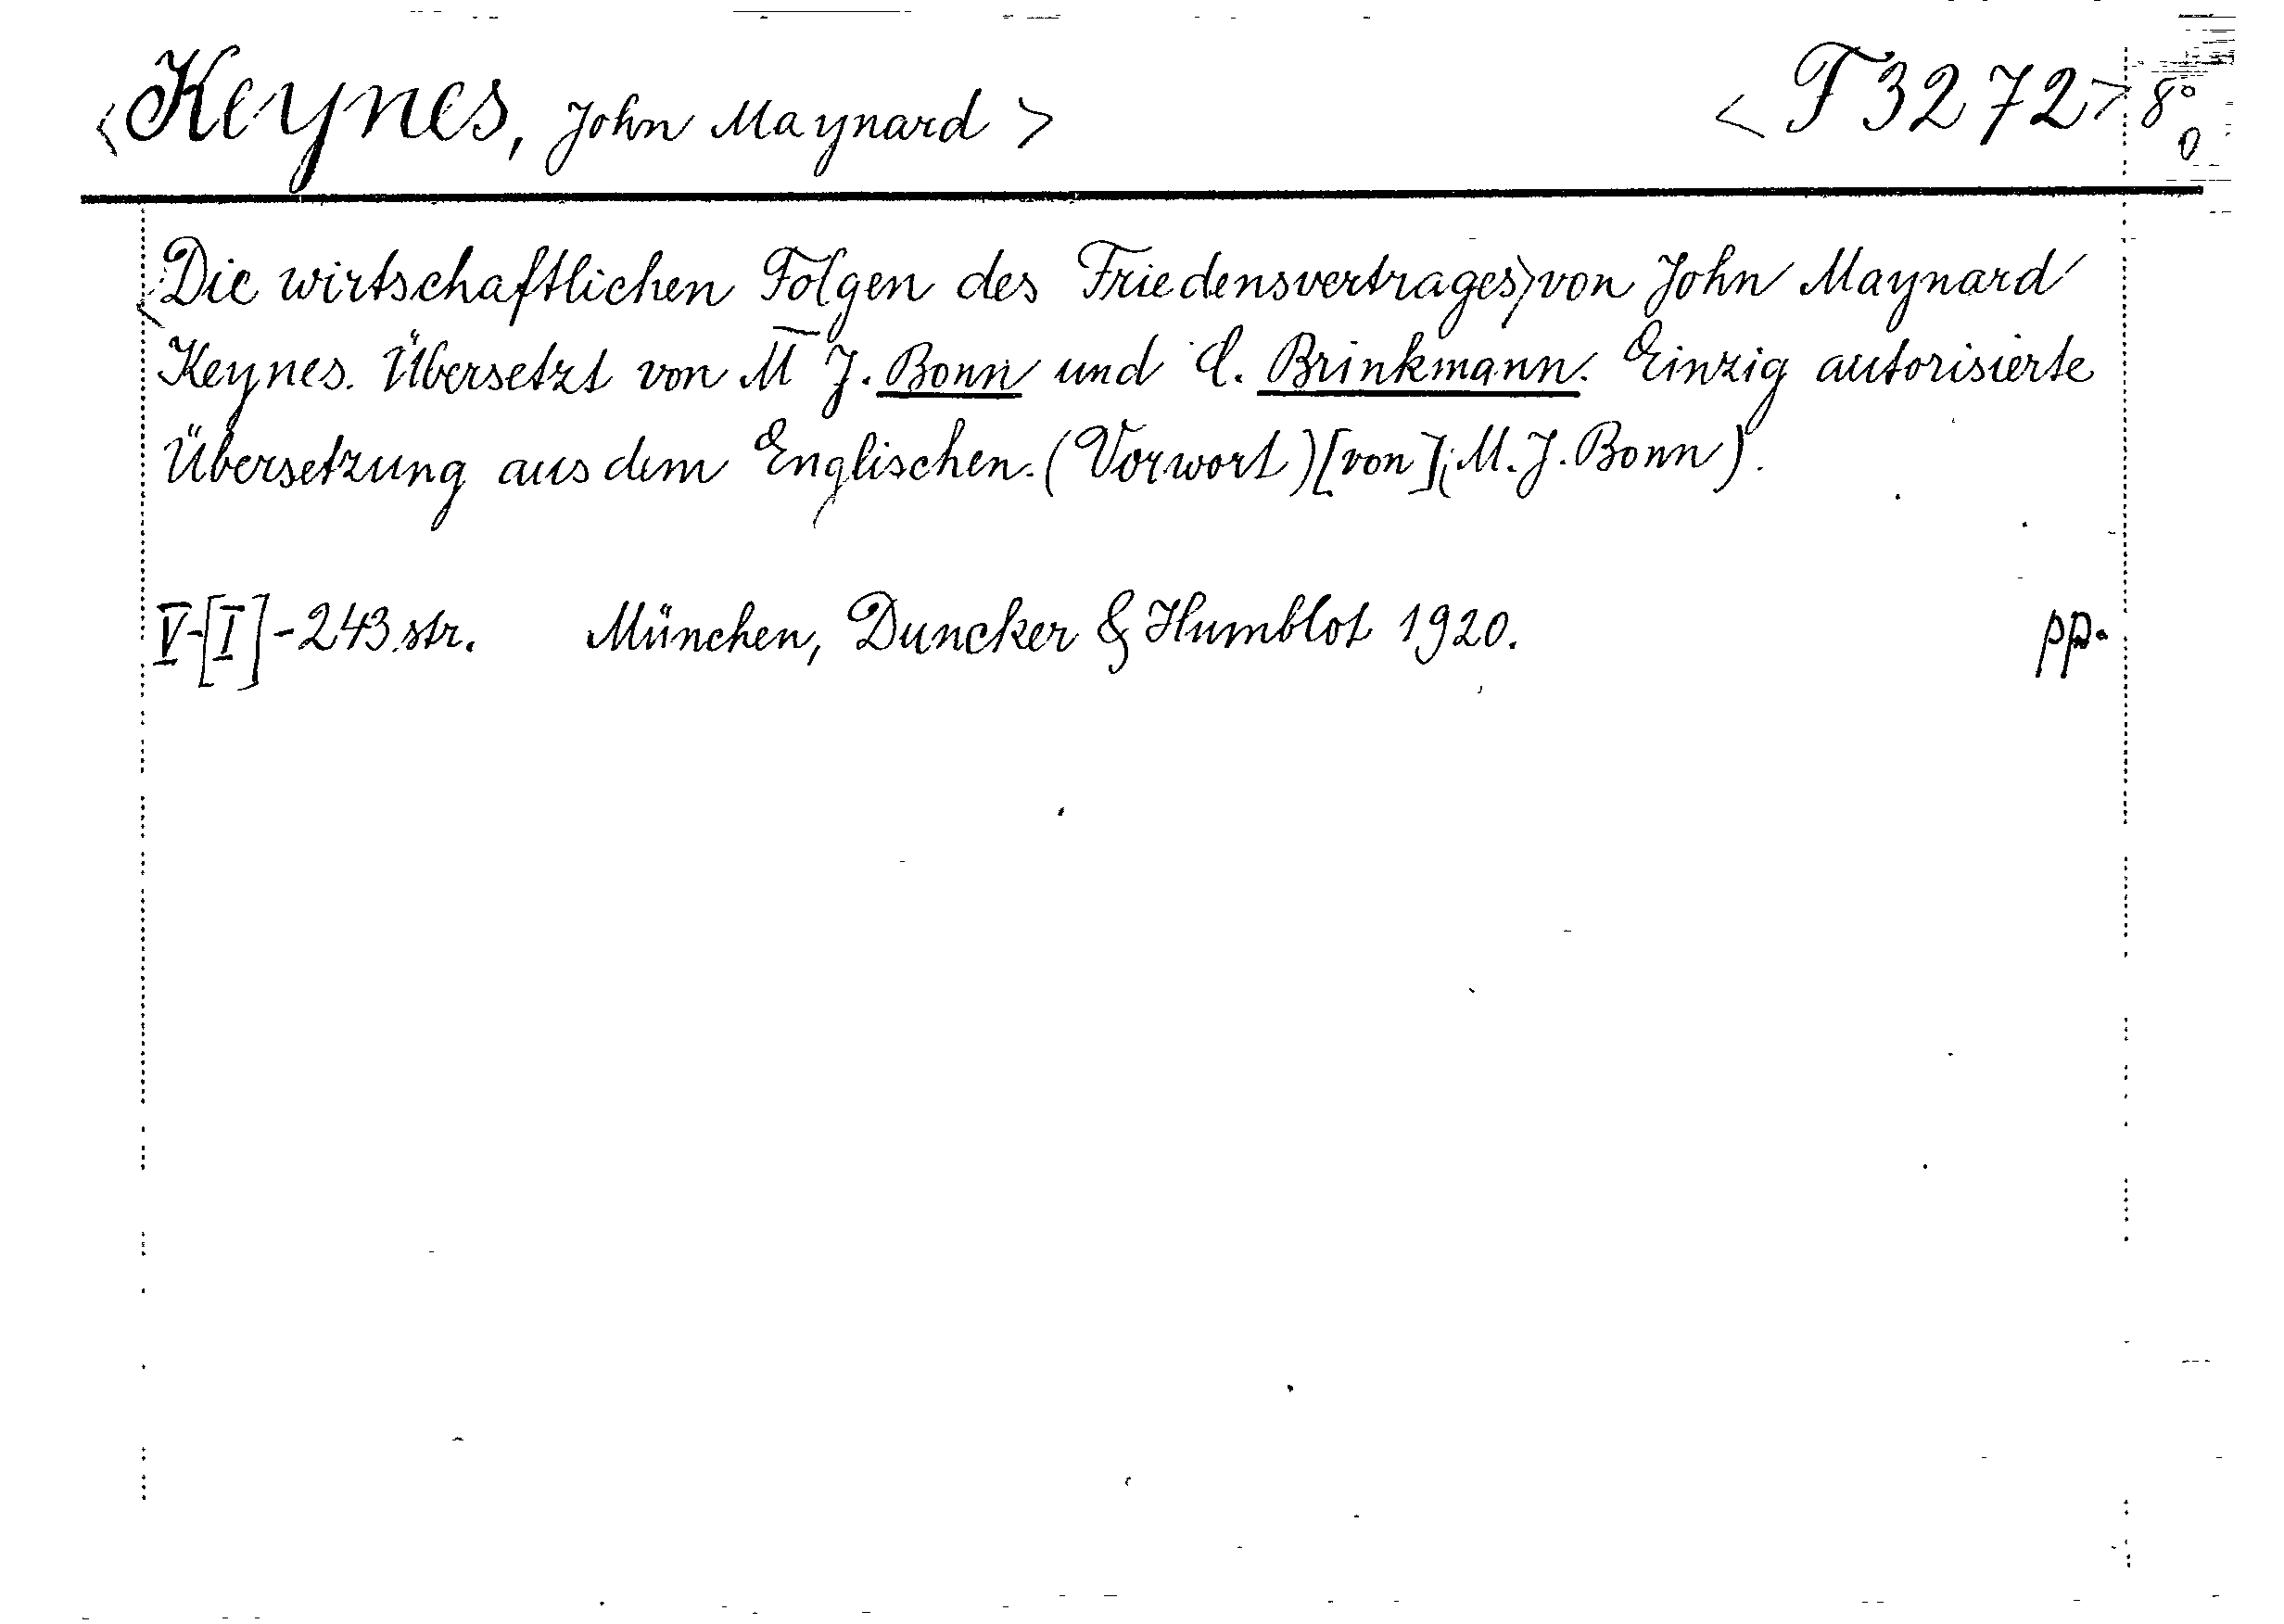 <Keynes, John Maynard> <T 3272> 8°
0
<Die wirtschaftlichen Folgen des Friedensvertrages> von John Maynard
Keynes. Übersetzt von M J. Bonn und C. Brinkmann. Einzig autorisierte
Übersetzung aus dem Englischen. (Vorwort) [von] (M. J. Bonn).
V-[I]-243 str. München, Duncker & Humblot 1920. pp.